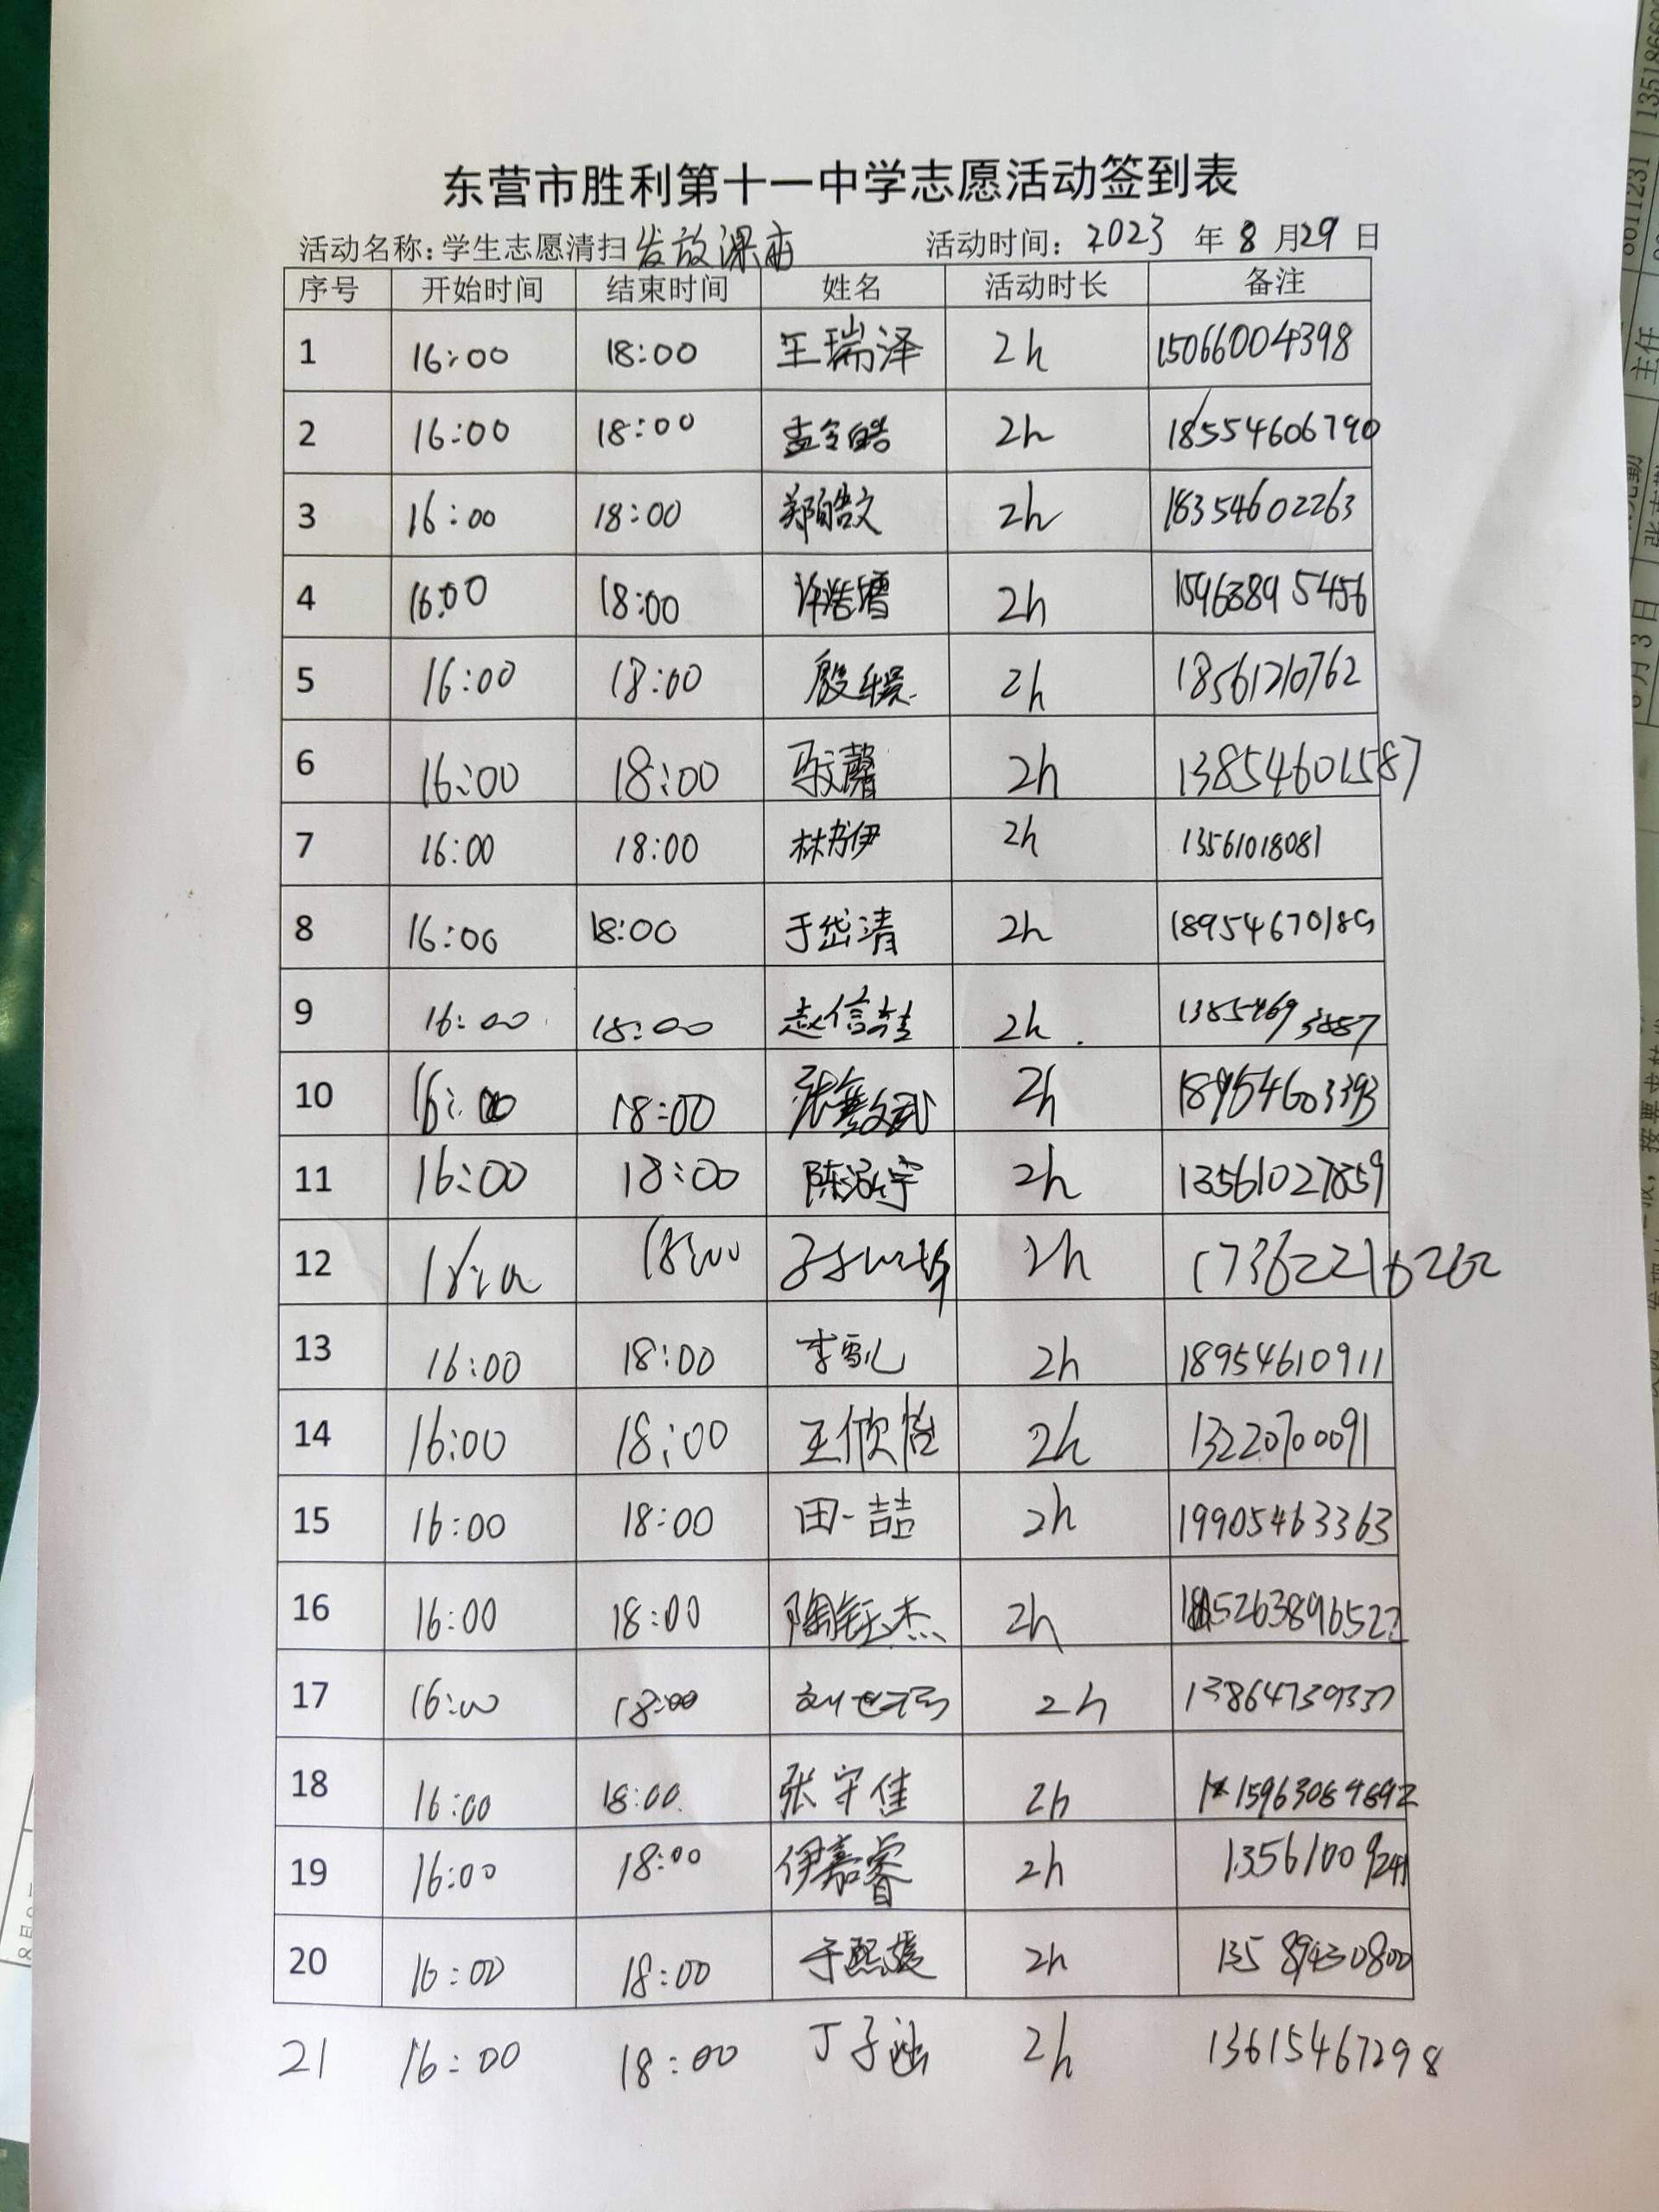 东营市胜利第十一中学志愿活动签到表
活动名称：学生志愿清扫 发放课本 活动时间：2023 年 8 月 29 日
序号 开始时间 结束时间 姓名 活动时长 备注
1 16:00 18:00 王瑞泽 2h 15066004398
2 16:00 18:00 孟令皓 2h 18554606790
3 16:00 18:00 郑皓文 2h 18354602263
4 16:00 18:00 2h 15963895456
5 16:00 18:00 殷 2h 18561210762
6 16:00 18:00 马文馨 2h 13854601587
7 16:00 18:00 林书伊 2h 13561018081
8 16:00 18:00 于岱清 2h 18954670189
9 16:00 18:00 赵信 2h 13854693887
10 16:00 18:00 张 2h 18954603393
11 16:00 18:00 陈泓宇 2h 13561027859
12 18:00 2h 17362216262
13 16:00 18:00 李 2h 18954610911
14 16:00 18:00 王欣怡 2h 13220700091
15 16:00 18:00 田一喆 2h 19905463363
16 16:00 18:00 陶钰杰 2h
17 16:00 18:00 刘世 2h 13864739337
18 16:00 18:00 张守佳 2h 15963084892
19 16:00 18:00 伊嘉睿 2h
20 16:00 18:00 于熙媛 2h 13589430800
21 16:00 18:00 丁子涵 2h 13615467298